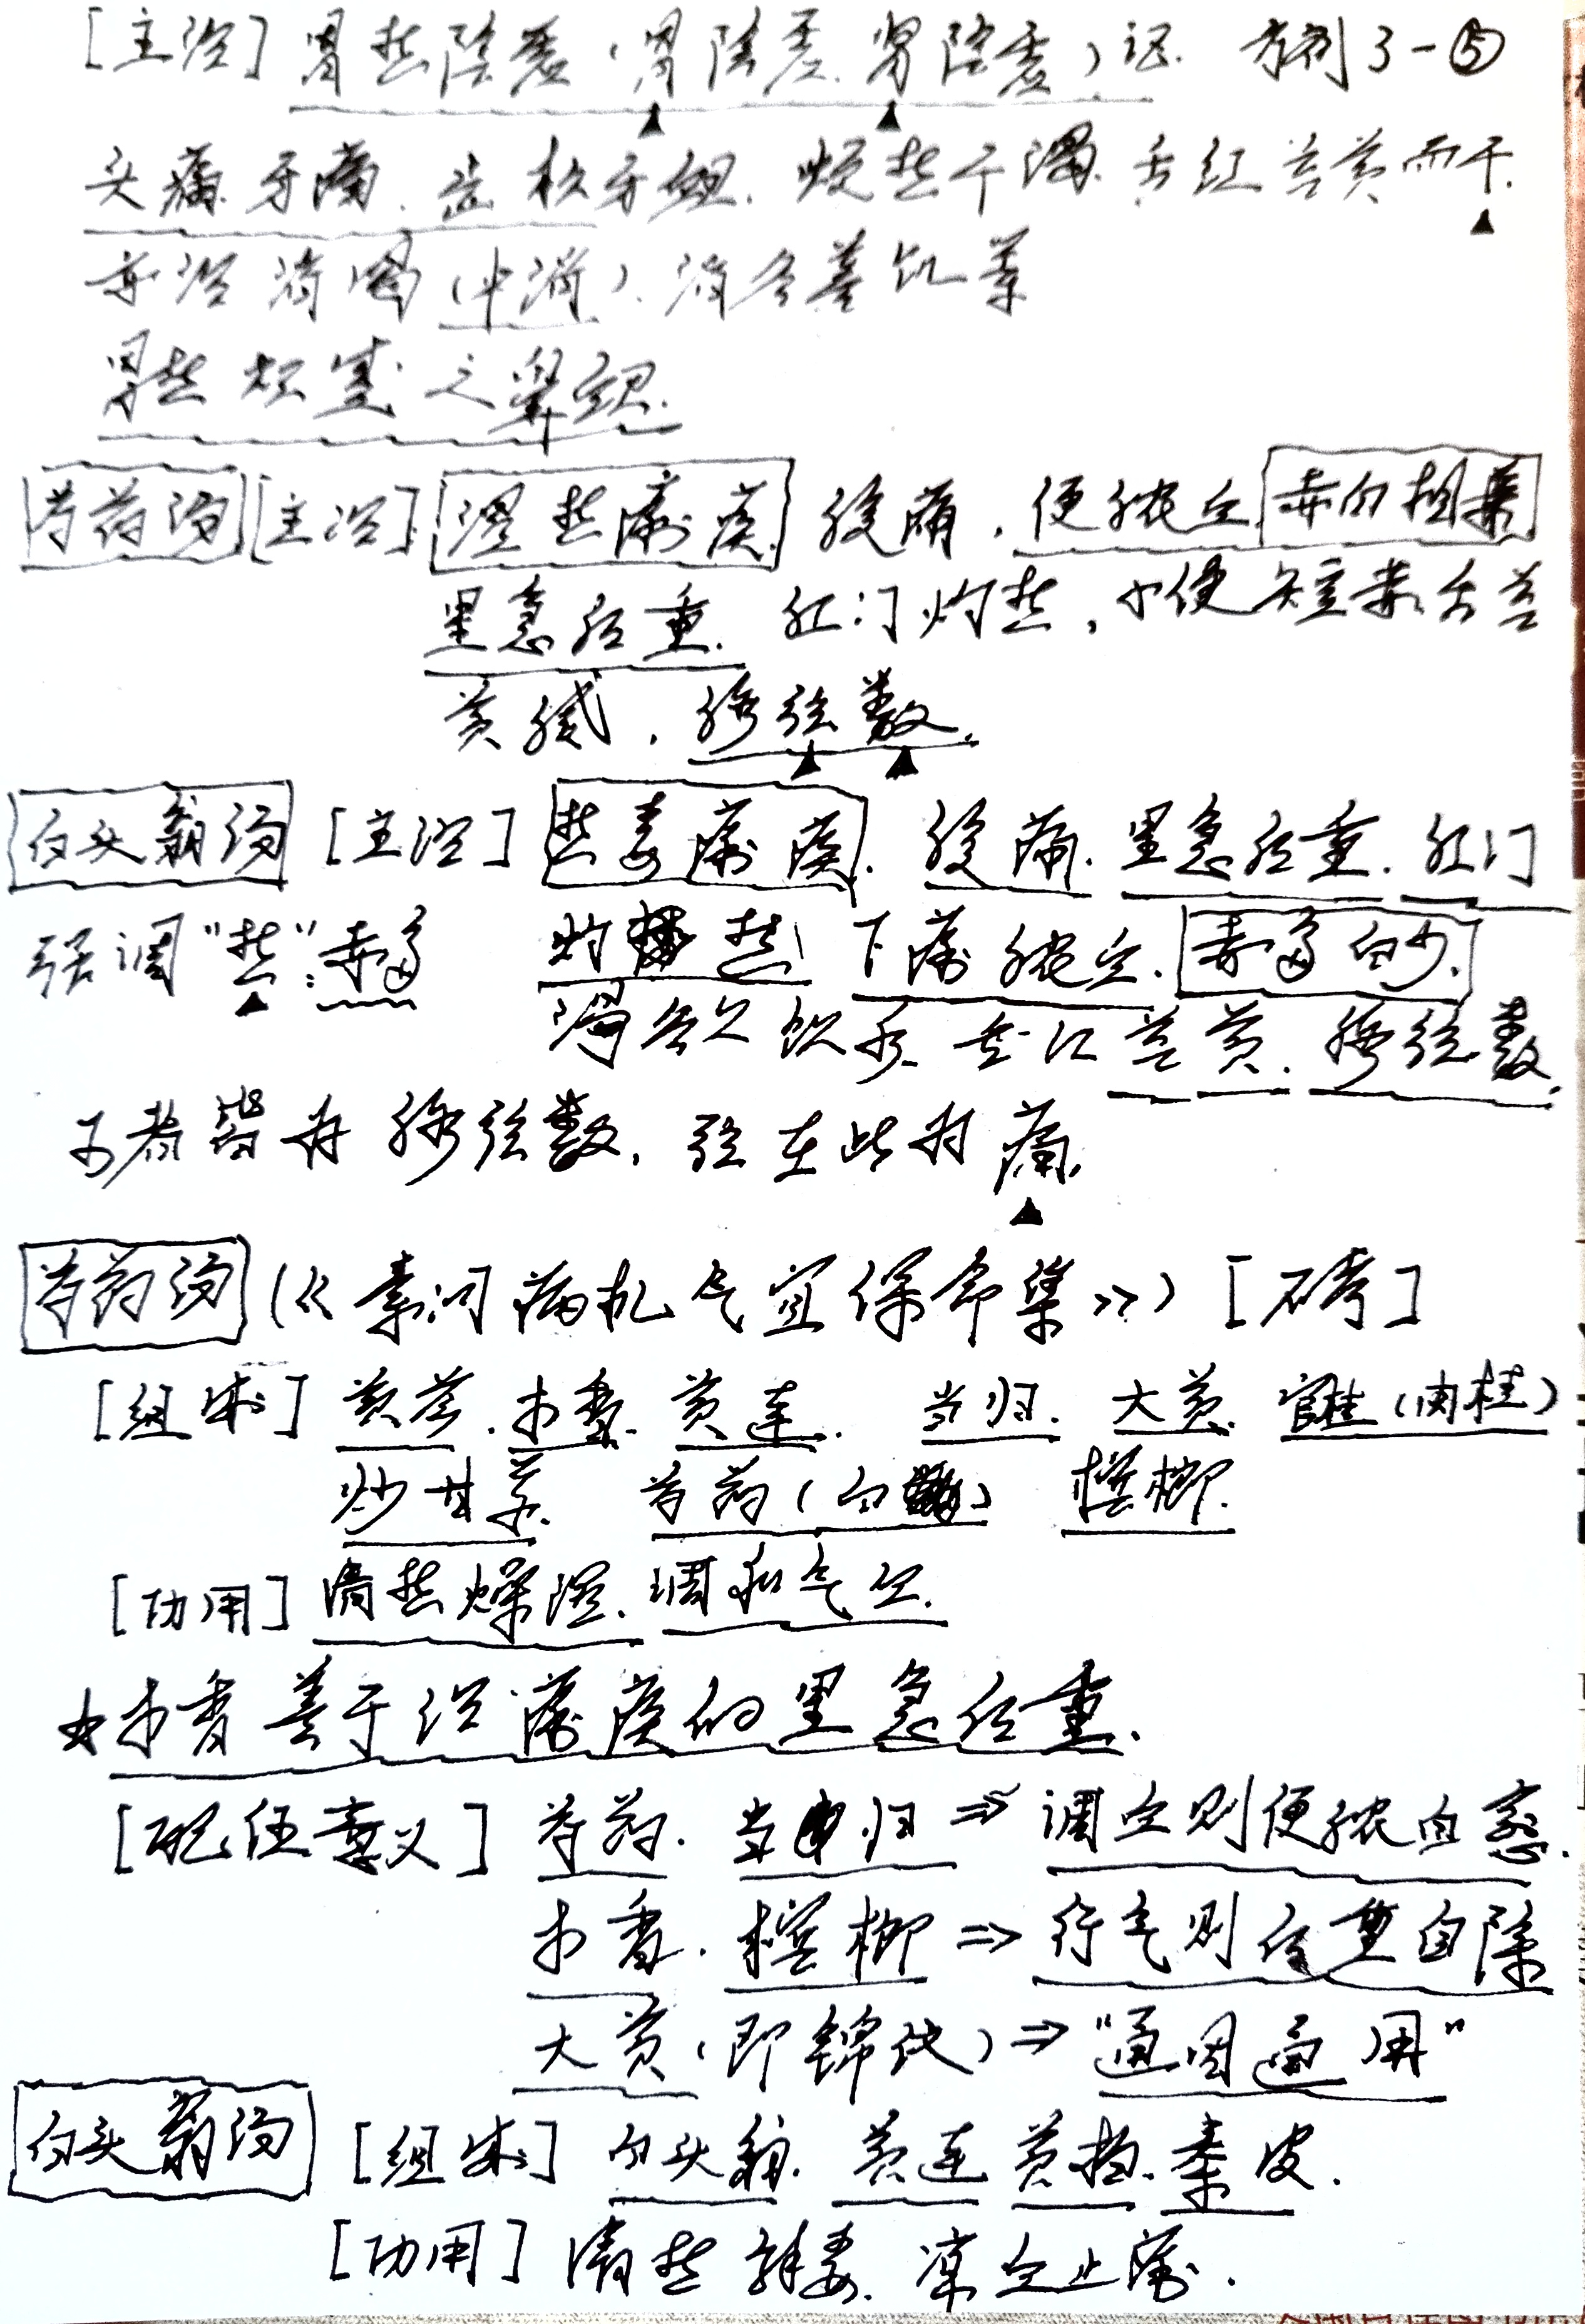 [主治] 胃热阴虚(胃阴虚.肾阴虚)证. 方剂3-⑤
头痛.牙痛.齿松牙衄.烦热干渴.舌红苔黄而干.
亦治消渴(中消).消谷善饥等
胃热炽盛之鼻衄.
芍药汤 [主治] 湿热痢疾. 腹痛,便脓血.赤白相兼.
里急后重. 肛门灼热,小便短赤.舌苔
黄腻,脉弦数.
白头翁汤 [主治] 热毒痢疾. 腹痛.里急后重.肛门
强调"热":赤多 灼热 下痢脓血.赤多白少.
渴欲饮水.舌红苔黄.脉弦数.
二者皆有脉弦数,弦在此为痛.
芍药汤 (《素问病机气宜保命集》) [不考]
[组成] 黄芩.木香.黄连. 当归.大黄.官桂(肉桂)
炒甘草. 芍药(白) 槟榔.
[功用] 清热燥湿.调和气血.
☆木香善于治痢疾的里急后重.
[配伍意义] 芍药.当归⇒调血则便脓自愈.
木香.槟榔⇒行气则后重自除
大黄(即锦纹)⇒"通因通用"
白头翁汤 [组成] 白头翁.黄连.黄柏.秦皮.
[功用] 清热解毒.凉血止痢.